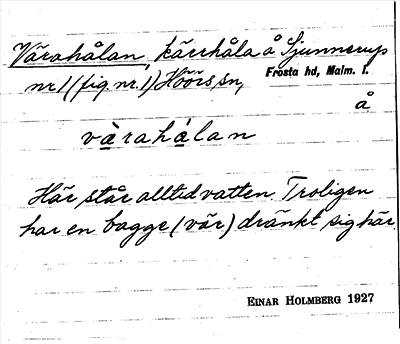 Värahålan, kärrhåla å Sjunnerup
nr 1 (fig. nr. 1) Höörs sn, Frosta hd, Malm. l.
å
vàrahálan
Här står alltid vatten. Troligen
har en bagge (vär) dränkt sig här.
EINAR HOLMBERG 1927